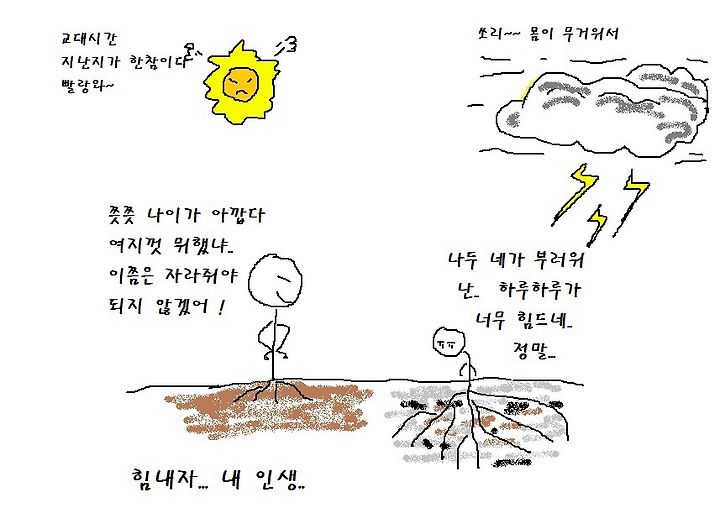 교대시간
지난지가 한참이다
빨랑와~
쏘리~~ 몸이 무거워서
쯧쯧 나이가 아깝다
여지껏 뭐했냐..
이쯤은 자라줘야
되지 않겠어 !
나두 네가 부러워
난.. 하루하루가
너무 힘드네..
정말...
ㅠㅠ
힘내자... 내 인생..